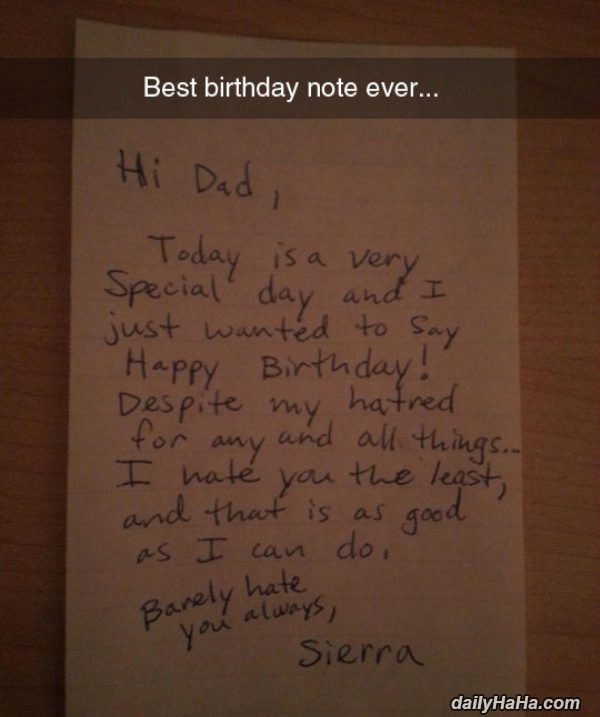 Best birthday note ever...
Hi Dad,
Today is a very
Special day and I
just wanted to say
Happy Birthday!
Despite my hatred
for any and all things...
I hate you the least,
and that is as good
as I can do.
Barely hate
you always,
Sierra
dailyHaHa.com